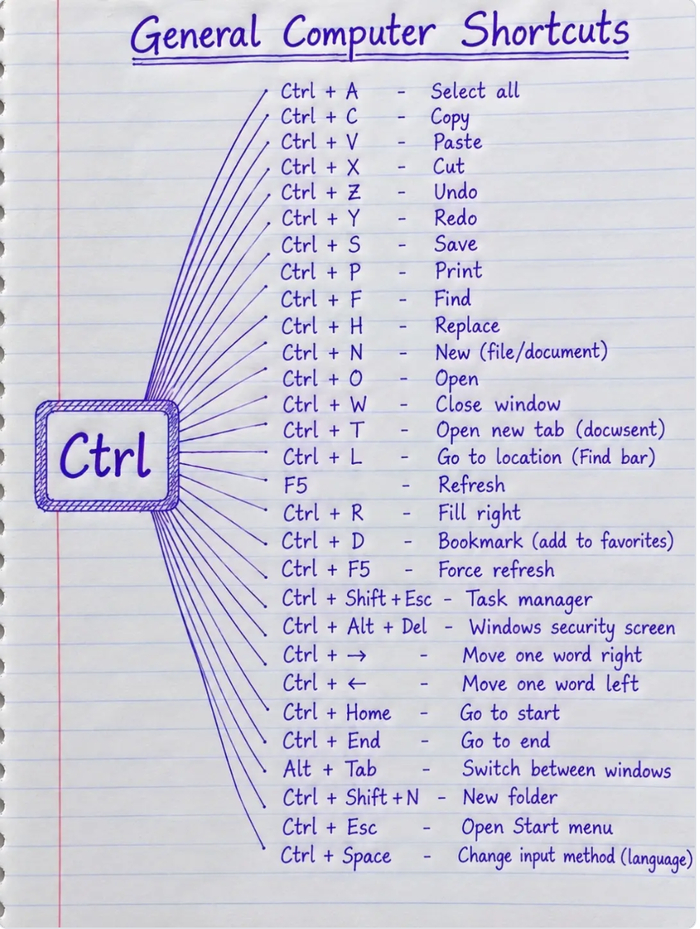 General Computer Shortcuts
Ctrl + A - Select all
Ctrl + C - Copy
Ctrl + V - Paste
Ctrl + X - Cut
Ctrl + Z - Undo
Ctrl + Y - Redo
Ctrl + S - Save
Ctrl + P - Print
Ctrl + F - Find
Ctrl + H - Replace
Ctrl + N - New (file/document)
Ctrl + O - Open
Ctrl + W - Close window
Ctrl + T - Open new tab (docwsent)
Ctrl + L - Go to location (Find bar)
Ctrl
F5 - Refresh
Ctrl + R - Fill right
Ctrl + D - Bookmark (add to favorites)
Ctrl + F5 - Force refresh
Ctrl + Shift + Esc - Task manager
Ctrl + Alt + Del - Windows security screen
Ctrl + → - Move one word right
Ctrl + ← - Move one word left
Ctrl + Home - Go to start
Ctrl + End - Go to end
Alt + Tab - Switch between windows
Ctrl + Shift + N - New folder
Ctrl + Esc - Open Start menu
Ctrl + Space - Change input method (language)